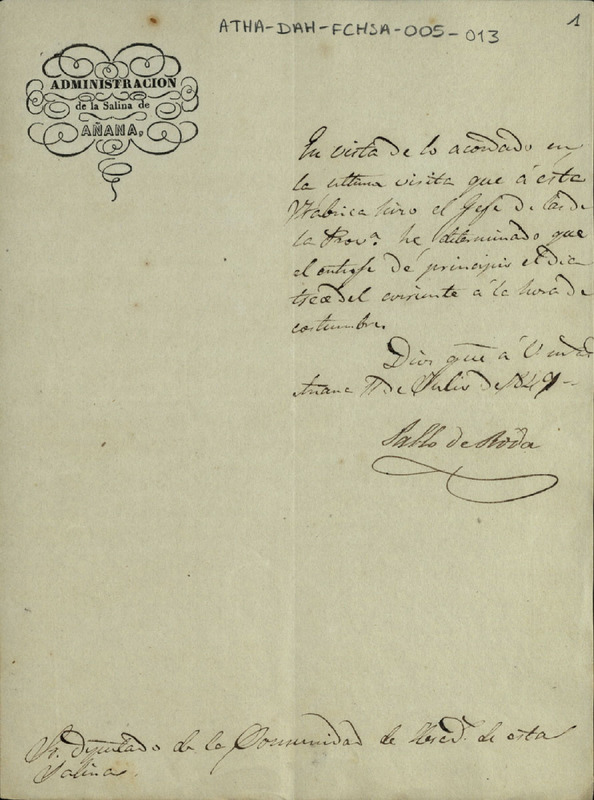 ATHA-DAH-FCHSA-005-013
1
ADMINISTRACION
de la Salina de
AÑANA,
En vista de lo acordado en
la ultima visita que á esta
Fábrica hizo el Gefe de
la Prov.ª he determinado que
el entrege dé principio el dia
trece del corriente á la hora de
costumbre.
Dios gue á V
Añana 11 de Julio de 1849
Pablo de Roda
Sr. Diputado de la Comunidad de Hered.s de esta
Salina.